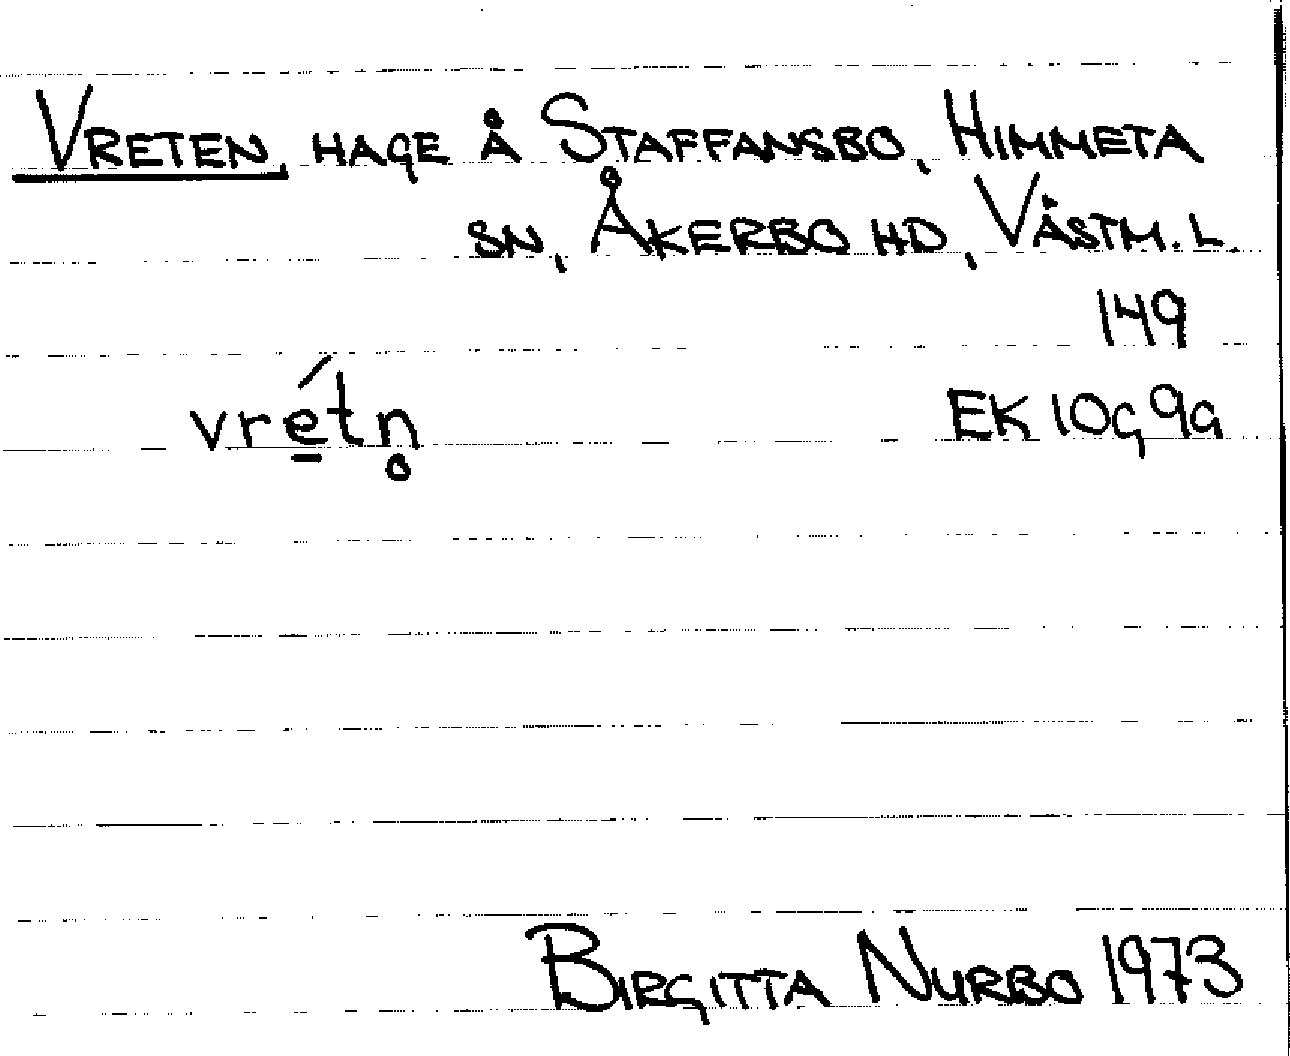 VRETEN, HAGE Å STAFFANSBO, HIMMETA
SN, ÅKERBO HD, VÄSTM. L.
149
vré̠tn̥ EK 10G 9a
BIRGITTA NURBO 1973